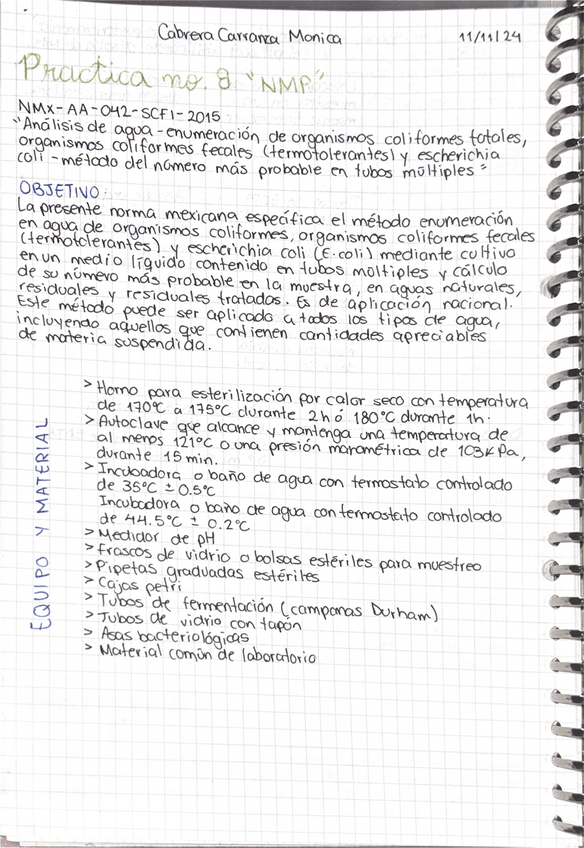 Cabrera Carranza Monica
11/11/24
Practica no. 8 "NMP"
NMX-AA-042-SCFI-2015
"Análisis de agua - enumeración de organismos coliformes totales,
organismos coliformes fecales (termotolerantes) y escherichia
coli - método del número más probable en tubos múltiples"
OBJETIVO:
La presente norma mexicana específica el método enumeración
en agua de organismos coliformes, organismos coliformes fecales
(termotolerantes) y escherichia coli (E. coli) mediante cultivo
en un medio líquido contenido en tubos múltiples y cálculo
de su número más probable en la muestra, en aguas naturales,
residuales y residuales tratadas. Es de aplicación nacional.
Este método puede ser aplicado a todos los tipos de agua,
incluyendo aquellos que contienen cantidades apreciables
de materia suspendida.
EQUIPO Y MATERIAL
> Horno para esterilización por calor seco con temperatura
de 170°C a 175°C durante 2h ó 180°C durante 1h.
> Autoclave que alcance y mantenga una temperatura de
al menos 121°C o una presión manométrica de 103KPa,
durante 15 min.
> Incubadora o baño de agua con termostato controlado
de 35°C ± 0.5°C
Incubadora o baño de agua con termostato controlado
de 44.5°C ± 0.2°C
> Medidor de pH
> Frascos de vidrio o bolsas estériles para muestreo
> Pipetas graduadas estériles
> Cajas petri
> Tubos de fermentación (campanas Durham)
> Tubos de vidrio con tapón
> Asas bacteriológicas
> Material común de laboratorio